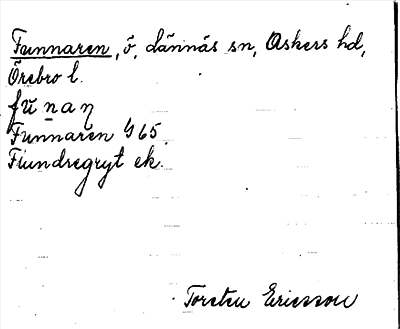 Funnaren, ö, Lännäs sn, Askers hd,
Örebro l.
fŭn̲aŋ
Funnaren G 65
Fiundregryt ek.
Torsten Ericsson